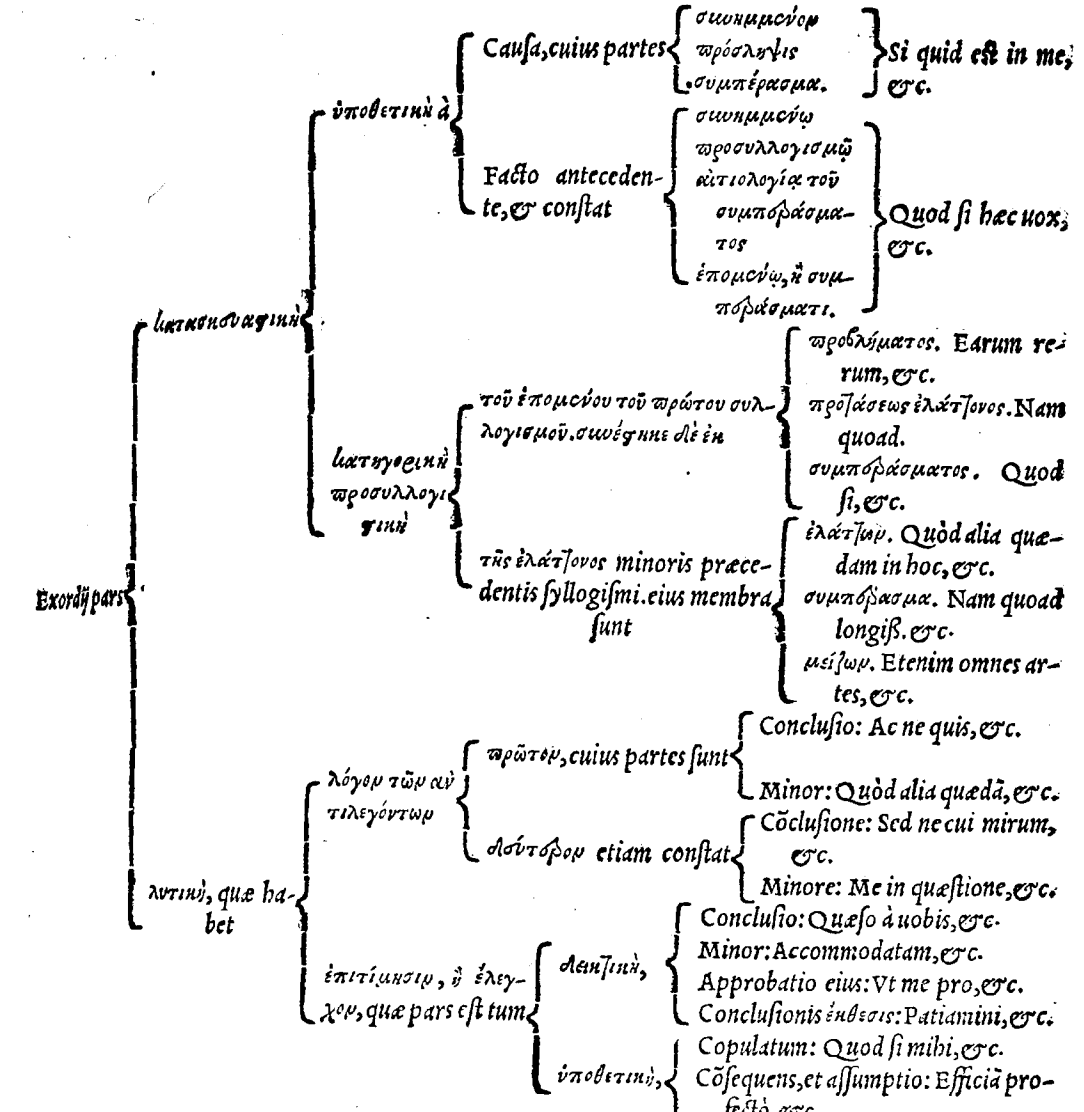 Exordij pars
κατασκευαστικὴ
ὑποθετικὴ à
Causa, cuius partes
συνημμένον
πρόσληψις
συμπέρασμα.
Si quid est in me,
&c.
Facto anteceden-
te, & constat
συνημμένῳ
προσυλλογισμῷ
αἰτιολογίᾳ τοῦ
συμπεράσμα-
τος
ἑπομένῳ, ἢ συμ-
περάσματι.
Quod si hæc uox,
&c.
κατηγορικὴ
προσυλλογι
στικὴ
τοῦ ἑπομένου τοῦ πρώτου συλ-
λογισμοῦ. συνέστηκε δὲ ἐκ
προβλήματος. Earum re-
rum, &c.
προτάσεως ἐλάττονος. Nam
quoad.
συμπεράσματος. Quod
si, &c.
τῆς ἐλάττονος minoris præce-
dentis syllogismi. eius membra
sunt
ἐλάττων. Quòd alia quæ-
dam in hoc, &c.
συμπέρασμα. Nam quoad
longiss. &c.
μείζων. Etenim omnes ar-
tes, &c.
λυτικὴ, quæ ha-
bet
λόγον τῶν ἀν
τιλεγόντων
πρῶτον, cuius partes sunt
Conclusio: Ac ne quis, &c.
Minor: Quòd alia quædã, &c.
δεύτερον etiam constat
Cõclusione: Sed ne cui mirum,
&c.
Minore: Me in quæstione, &c.
ἐπιτίμησιν, ἢ ἔλεγ-
χον, quæ pars est tum
δεικτικὴ,
Conclusio: Quæso à uobis, &c.
Minor: Accommodatam, &c.
Approbatio eius: Vt me pro, &c.
Conclusionis ἔκθεσις: Patiamini, &c.
ὑποθετικὴ,
Copulatum: Quod si mihi, &c.
Cõsequens, et assumptio: Efficiã pro-
fectò, &c.